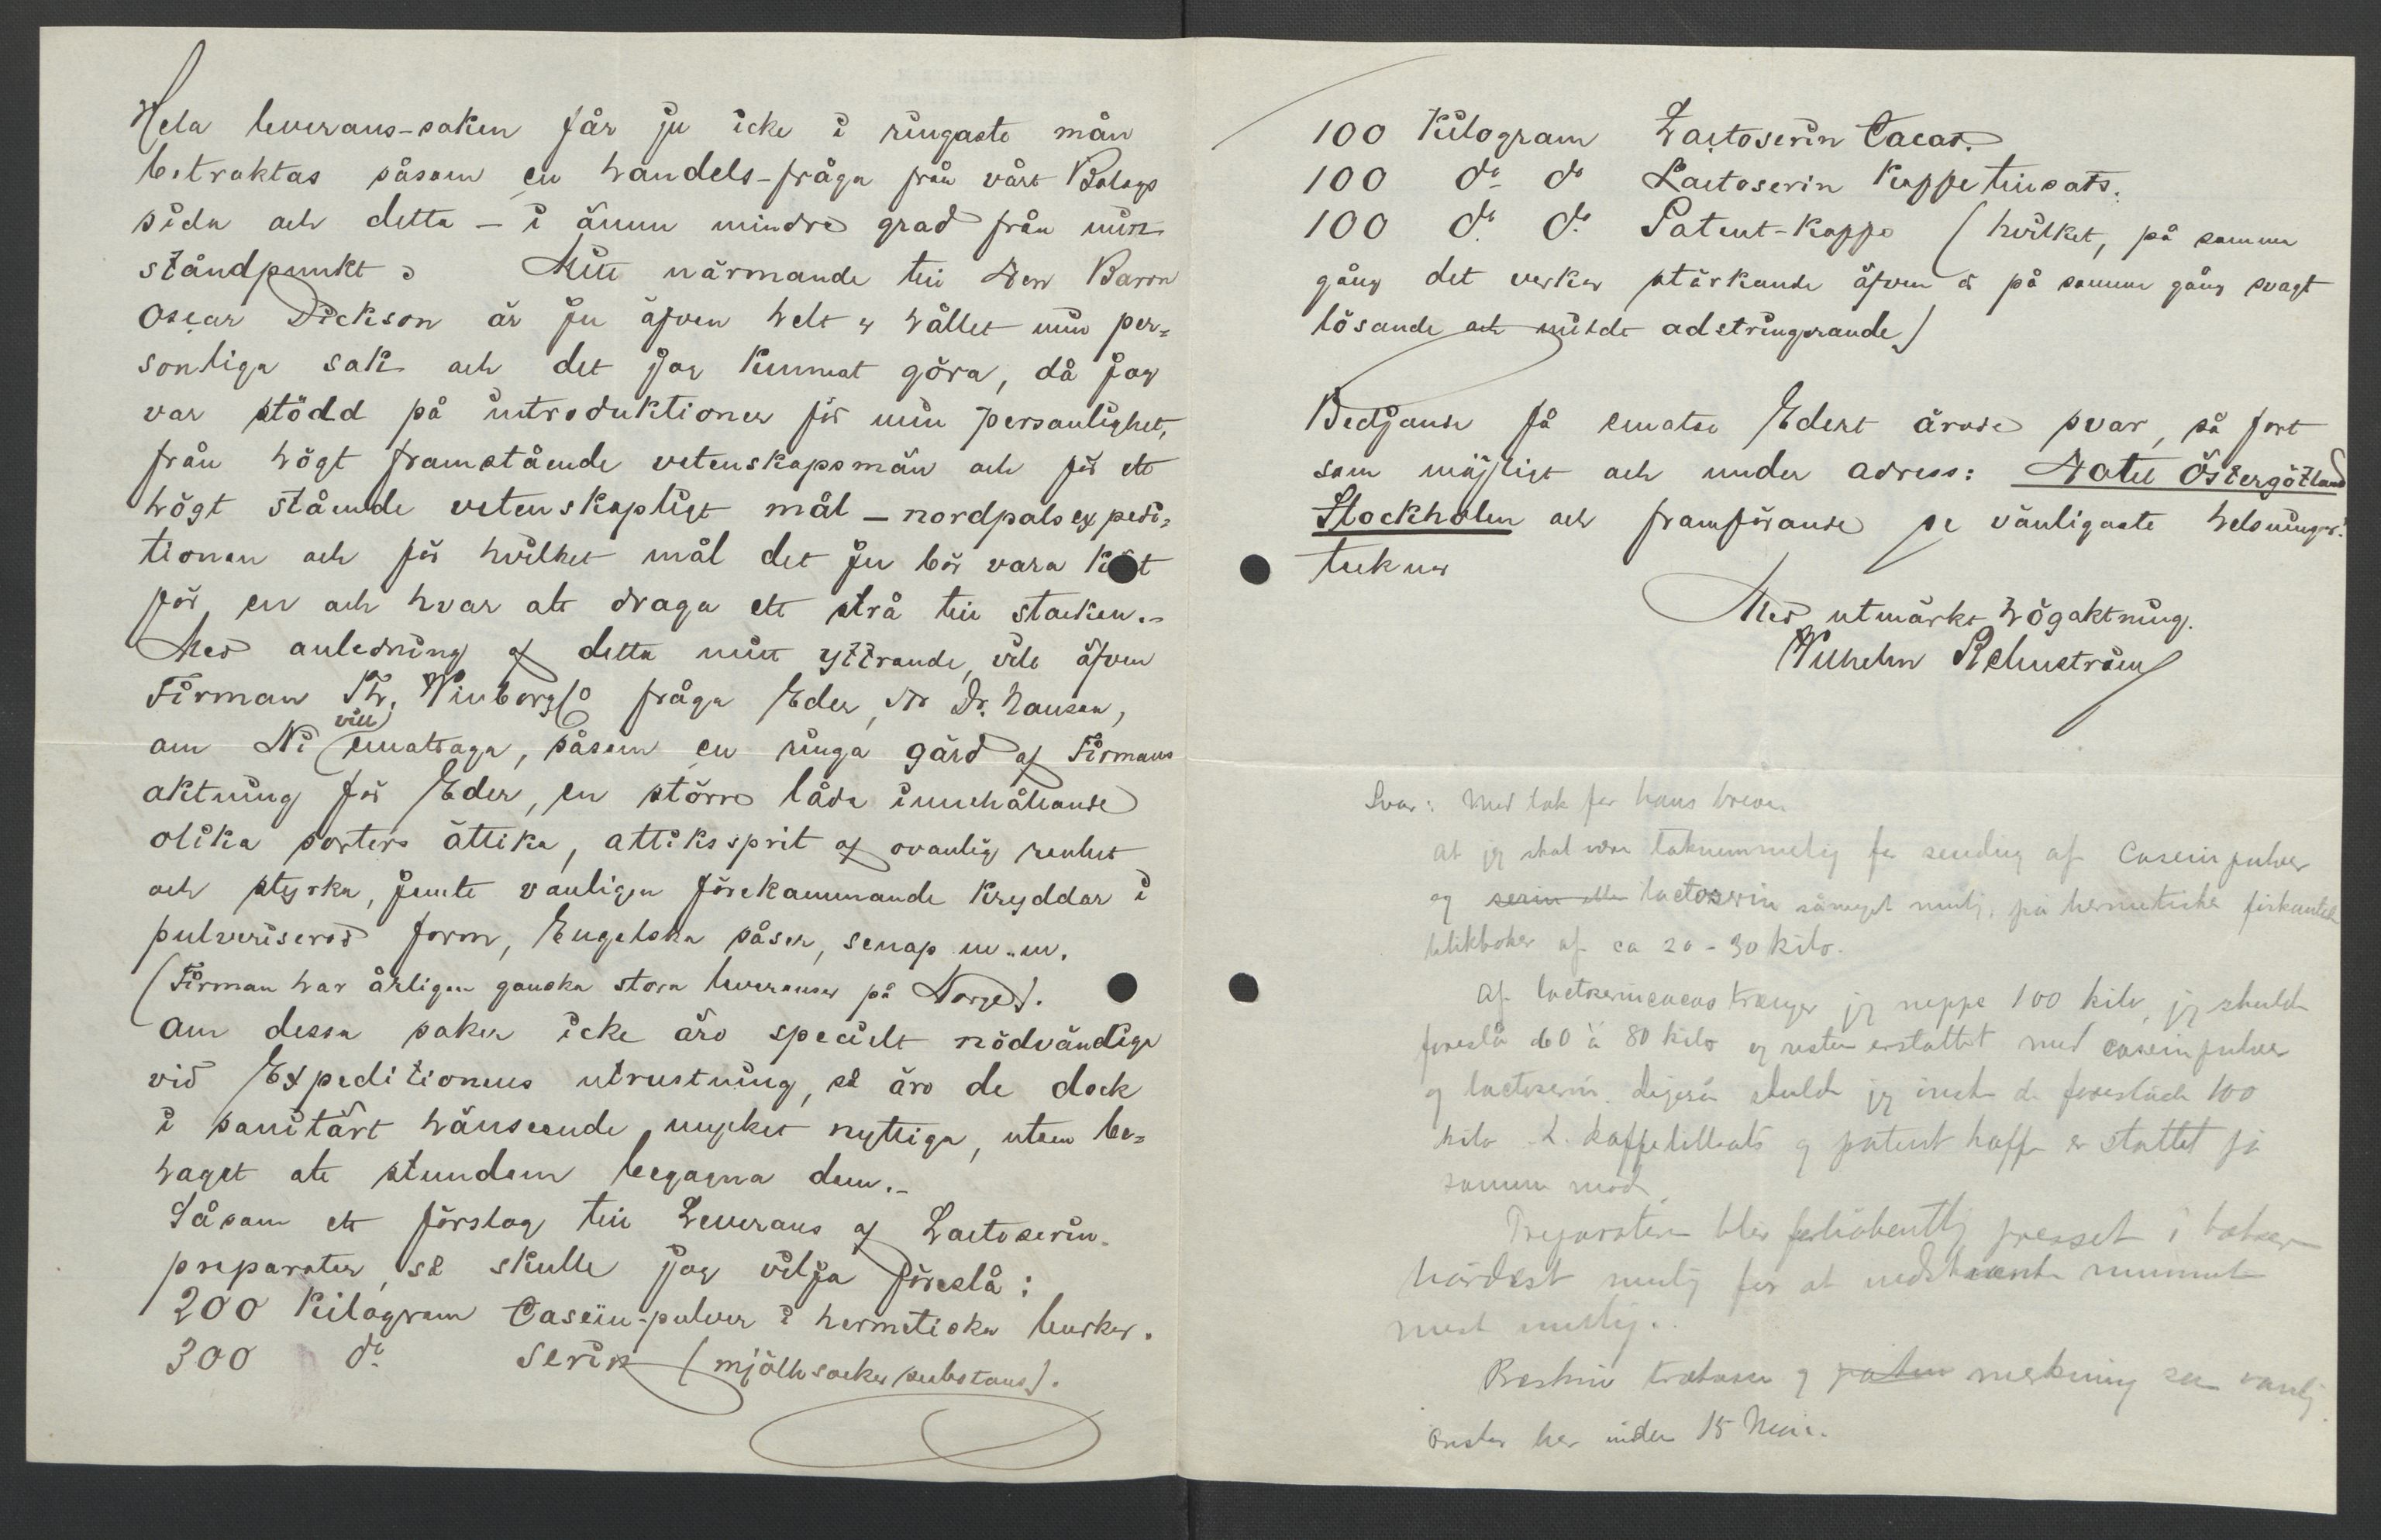 Hela leverans-saken får ju icke i ringaste mån
betraktas såsom en handels-fråga från vårt Bolags
sida och detta – i ännu mindre grad från min
ståndpunkt. Mitt närmande till Herr Baron
Oscar Dickson är ju äfven helt & hållet min per=
sonliga sak och det jag kunnat göra, då jag
var stödd på introduktioner för min personlighet,
från högt framstående vetenskapsmän och för ett
högt stående vetenskapligt mål – nordpolsexpedi=
tionen och för hvilket mål det ju bör vara kärt
för en och hvar att draga ett strå till stacken.–
Med anledning af detta mitt yttrande, vill äfven
Firman Th. Winborg & Co fråga Eder, Hr Dr. Nansen,
om Ni vill emottaga, såsom en ringa gärd af Firmans
aktning för Eder, en större låda innehållande
olika sorters ättika, ättikssprit af ovanlig renhet
och styrka, jemte vanligen förekommande kryddor i
pulveriserad form, Engelska såser, senap m.m.
(Firman har årligen ganska stora leveranser på Norge).
Om dessa saker icke äro speciellt nödvändiga
vid Expeditionens utrustning, så äro de dock
i sanitärt hänseende mycket nyttiga, utom be=
haget att stundom begagna dem.–
Såsom ett förslag till Leverans af Lactoserin-
preparater, så skulle jag vilja föreslå:
200 Kilogram Caseïn-pulver i hermetiska burkar.
300 do Serin (mjölksocker substans).
100 Kilogram Lactoserin Cacao.
100 do do Lactoserin Kaffe tillsats.
100 do do Patent-Kaffe (hvilket, på samma
gång det verkar stärkande äfven är på samma gång svagt
lösande och mildt adstringerande)
Bedjande få emotse Edert ärade svar, så fort
som möjligt och under adress: Hotel Östergötland
Stockholm och framförande de vänligaste helsningar.
tecknar
Med utmärkt högaktning.
Wilhelm Rehnström
Svar: Med tak for hans breve
At jeg skal være taknemmelig for sending af Caseinpulver
og serin eller lactoserin såmeget mulig, på hermetiske firkantede
blikbokser af ca 20 - 30 kilo.
Af lactoserincacao trænger jeg neppe 100 kilo, jeg skulde
foreslå 60 à 80 kilo og resten erstattet med caseinpulver
og lactoserin. Ligeså skulde jeg ønske de foreslåede 100
kilo L. kaffetillsats og patent kaffe erstattet på
samme måde.
Preparaterne blir forhåbentlig presset i bokser
hårdest mulig for at indskrænke rummet
mest mulig.
og merkning som vanlig
Ønskes her inden 15 Mai.